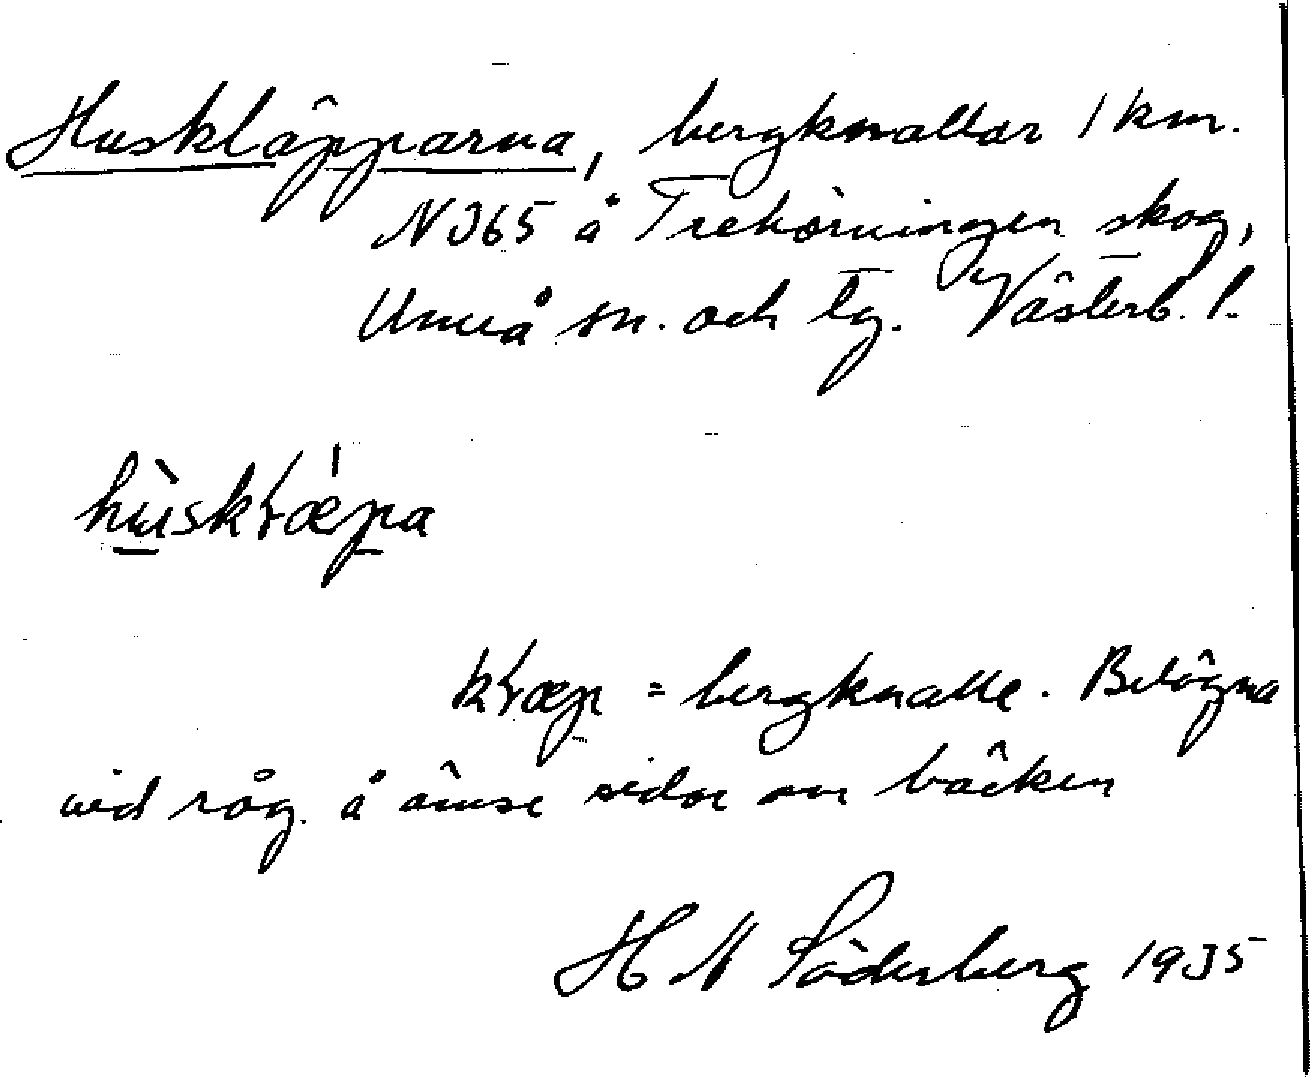 Huskläpparna, bergknallar 1 km.
N 365 å Trehörningen skog,
Umeå sn. och tg. Västerb. l.
hùskɽæ̍pa
kɽæp = bergknalle. Belägna
vid råg. å ömse sidor om bäcken
H M Söderberg 1935